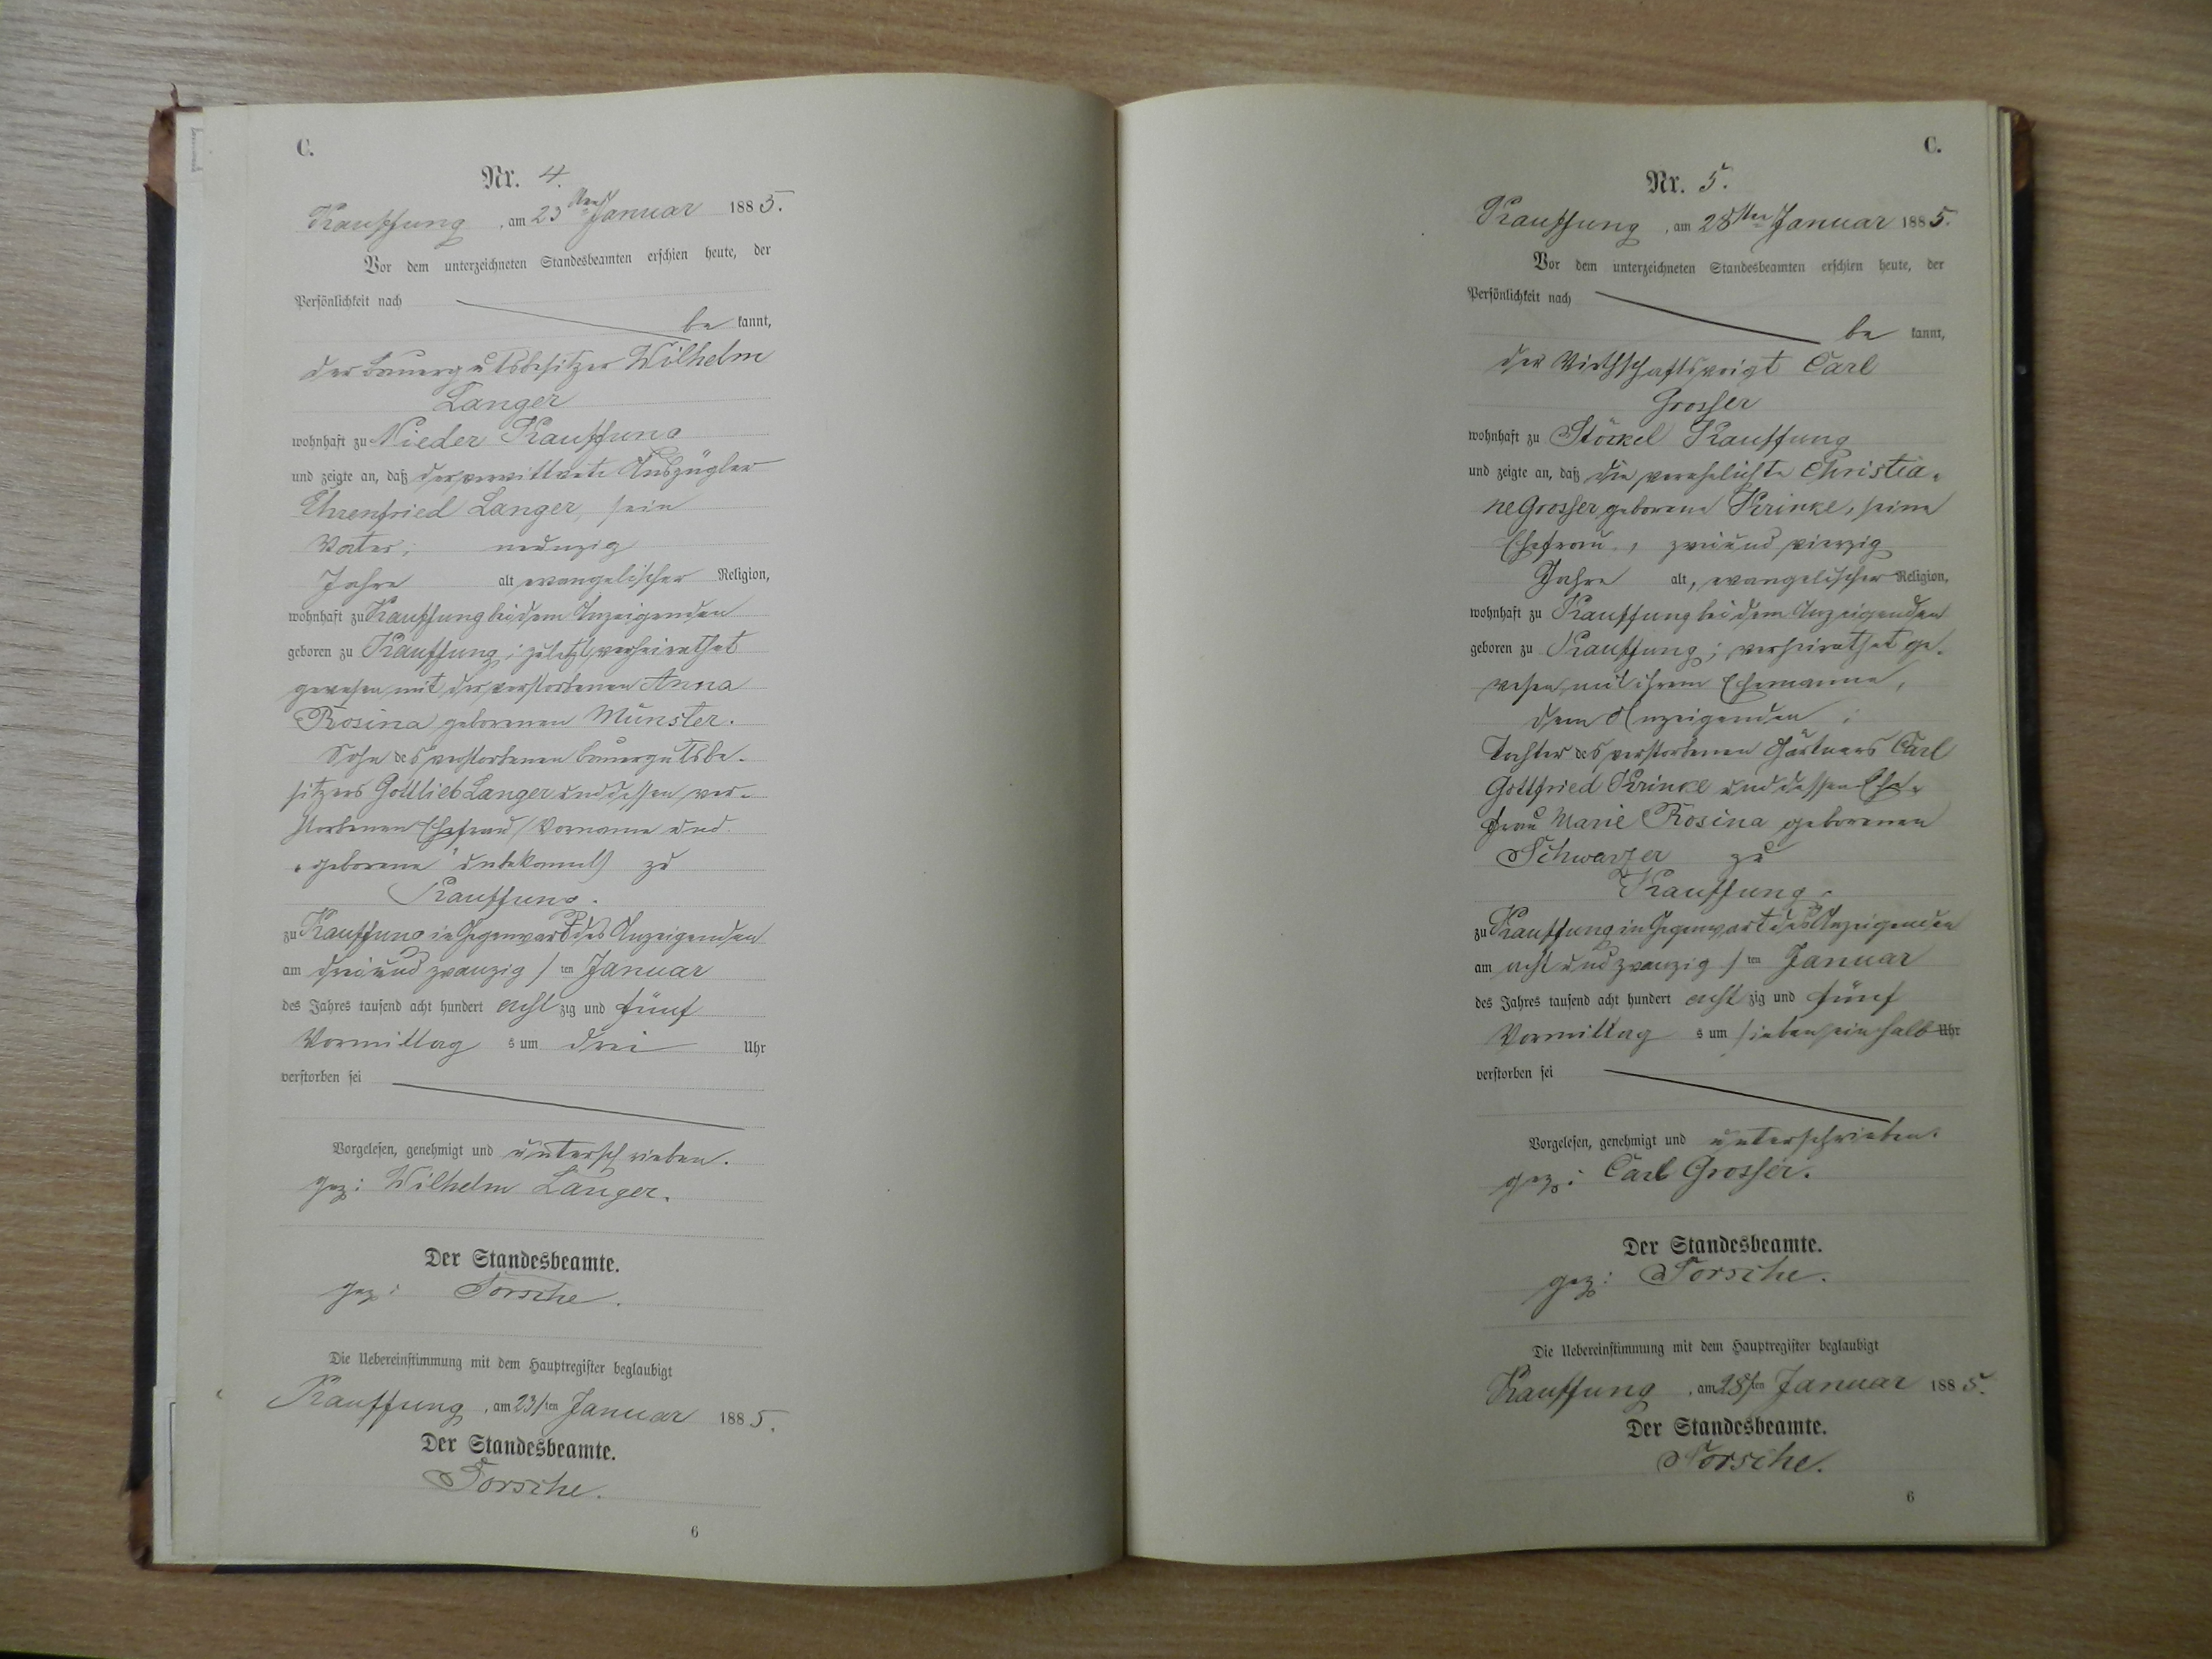 C.
Nr. 4.
Kauffung, am 23sten Januar 1885.
Vor dem unterzeichneten Standesbeamten erschien heute, der
Persönlichkeit nach
be kannt,
der Bauergutsbesitzer Wilhelm
Langer
wohnhaft zu Nieder Kauffung
und zeigte an, daß der verwittwete Auszügler
Ehrenfried Langer, sein
Vater, neunzig
Jahre alt evangelischer Religion,
wohnhaft zu Kauffung bei dem Anzeigenden
geboren zu Kauffung; zuletzt verheirathet
gewesen mit der verstorbenen Anna
Rosina geborenen Münster.
Sohn des verstorbenen Bauergutsbe-
sitzers Gottlieb Langer und dessen ver-
storbenen Ehefrau (Vorname und
"geborene" unbekannt) zu
Kauffung.
zu Kauffung in Gegenwart des Anzeigenden
am drei und zwanzig sten Januar
des Jahres tausend acht hundert acht zig und fünf
Vormittag s um drei Uhr
verstorben sei
Vorgelesen, genehmigt und unterschrieben.
gez: Wilhelm Langer.
Der Standesbeamte.
gez: Torsche.
Die Uebereinstimmung mit dem Hauptregister beglaubigt
Kauffung, am 23sten Januar 1885.
Der Standesbeamte.
Torsche.
6
C.
Nr. 5.
Kauffung, am 28sten Januar 1885.
Vor dem unterzeichneten Standesbeamten erschien heute, der
Persönlichkeit nach
be kannt,
der Wirthschaftsvoigt Carl
Grosser
wohnhaft zu Stöckel Kauffung
und zeigte an, daß die verehelichte Christia-
ne Grosser geborene Krinke, seine
Ehefrau, zwei und vierzig
Jahre alt, evangelischer Religion,
wohnhaft zu Kauffung bei dem Anzeigenden
geboren zu Kauffung; verheirathet ge-
wesen mit ihrem Ehemanne,
dem Anzeigenden;
Tochter des verstorbenen Gärtners Carl
Gottfried Krinke und dessen Ehe-
frau Marie Rosina geborenen
Schwarzer zu
Kauffung.
zu Kauffung in Gegenwart des Anzeigenden
am acht und zwanzig sten Januar
des Jahres tausend acht hundert acht zig und fünf
Vormittag s um sieben ein halb Uhr
verstorben sei
Vorgelesen, genehmigt und unterschrieben.
gez: Carl Grosser.
Der Standesbeamte.
gez: Torsche.
Die Uebereinstimmung mit dem Hauptregister beglaubigt
Kauffung, am 28sten Januar 1885.
Der Standesbeamte.
Torsche.
6